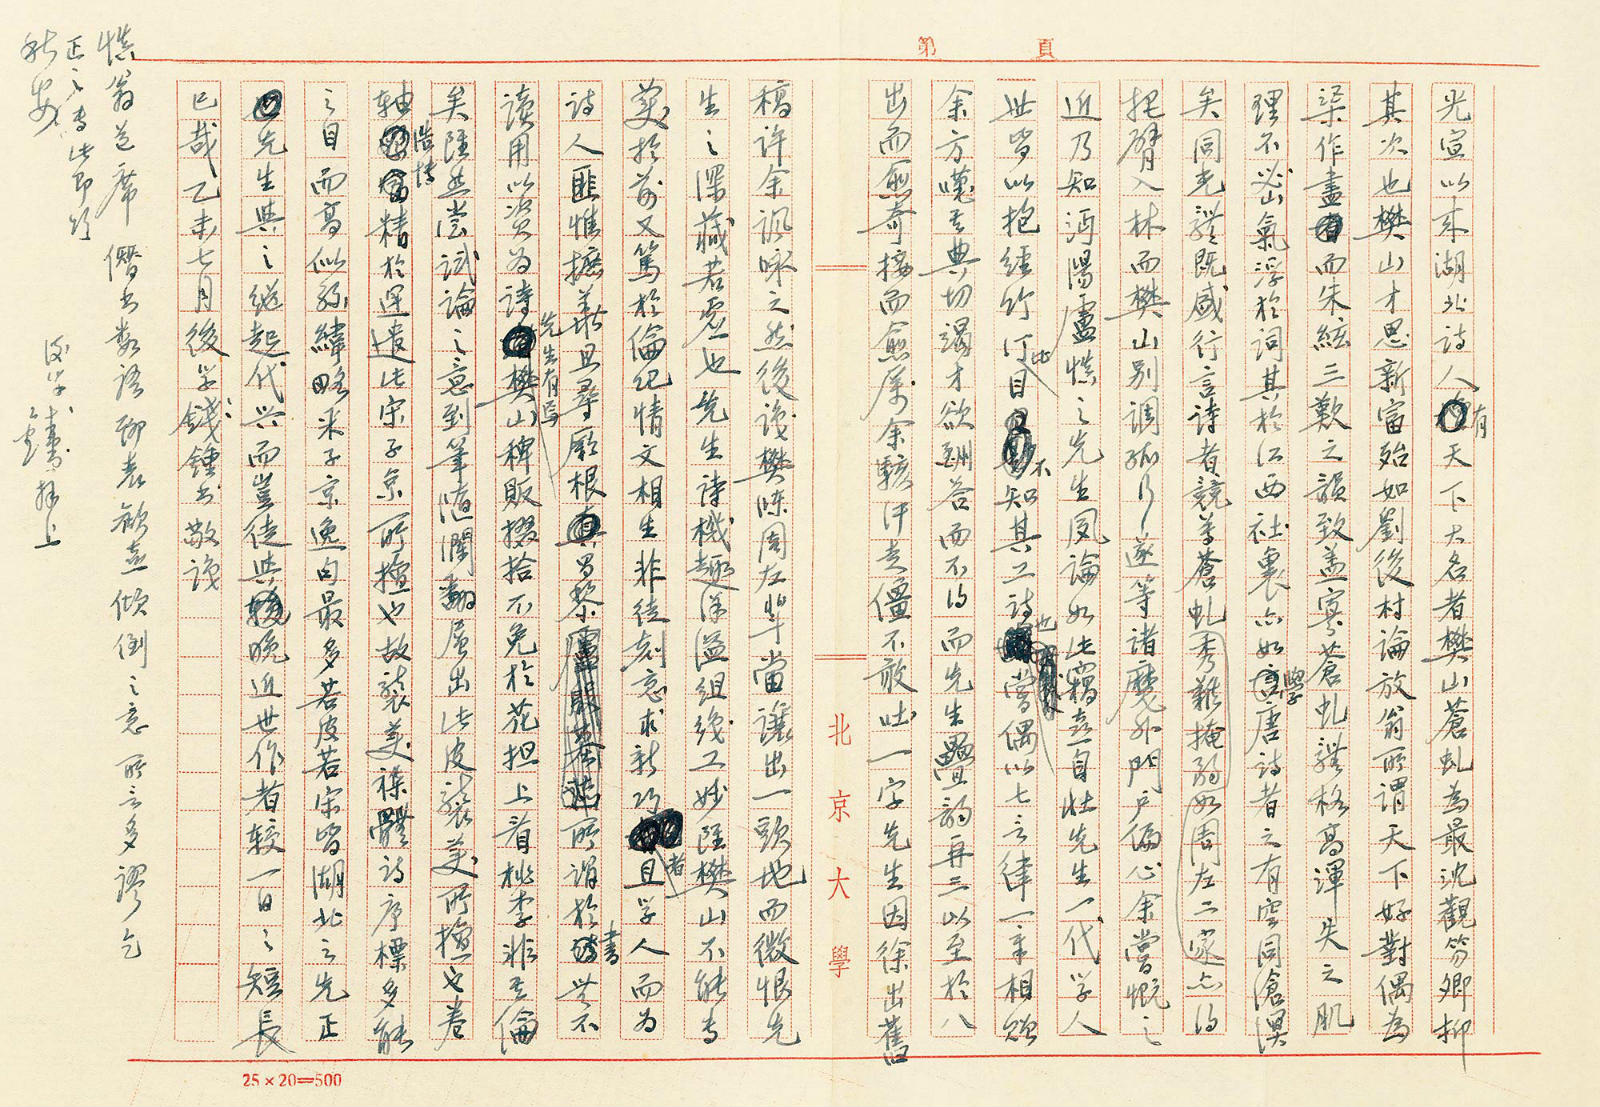 第　頁
光宣以來湖北詩人有天下大名者樊山蒼虬為最沈觀笏卿抑
其次也樊山才思新富殆如劉後村論放翁所謂天下好對偶為
渠作盡而朱絃三歎之韻致蓋寡蒼虬體格高渾失之肌
理不必氣浮於詞其於江西社裏亦如學唐詩者之有空同滄溟
矣同光體既盛行言詩者競尊蒼虬秀難掩弱如周左二家亦得
把臂入林而樊山別調孤行遂等諸魔外門戶偏心余嘗慨之
近乃知沔陽盧慎之先生夙論如此竊喜自壯先生一代學人
世皆以抱經竹汀比目不知其工詩也嘗偶以七言律一章相貺
余方嘆其典切渴才欲酬答而不得而先生疊韵再三以至於八
出而愈奇接而愈厲余駭汗走僵不敢吐一字先生因徐出舊
北京大學
稿許余諷咏之然後識樊陳周左輩當讓出一頭地而微恨先
生之深藏若虛也先生詩機趣洋溢組織工妙陸樊山不能專
美於前又篤於倫紀情文相生非徒刻意求新巧者且學人而為
詩人匪惟摭華且尋厥根昌黎所謂於書無不
讀用以資為詩先生有焉樊山稗販掇拾不免於花担上看桃李非其倫
矣陸然嘗試論之意到筆隨瀾翻層出此皮襲美所擅也卷
軸浩博精於運遣此宋子京所擅也故襲美雜體詩序標多能
之目而高似孫緯略采子京逸句最多若皮若宋皆湖北之先正
先生與之繼起代興而豈徒與晚近世作者較一日之短長
已哉乙未七月後學錢鍾書敬識
慎翁苫席 僭書數語聊表歡喜傾倒之意所言多謬乞
正之專此即頌
秋安
後學 鍾書 拜上
25×20=500